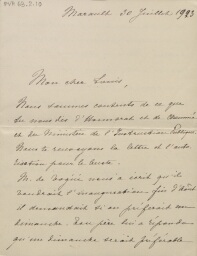 30 Juillet 1923
Mon cher Louis,
Nous sommes contents de ce que
tu nous dis d'
et du Ministère de l'Instruction Publique
Nous te renvoyons la lettre et l'
pour le buste.
M. de nous a écrit qu'il
voudrait l'inauguration fin d'Août
il demandait si on préférait un
dimanche. Ton père lui a répondu
qu'un dimanche serait préférable